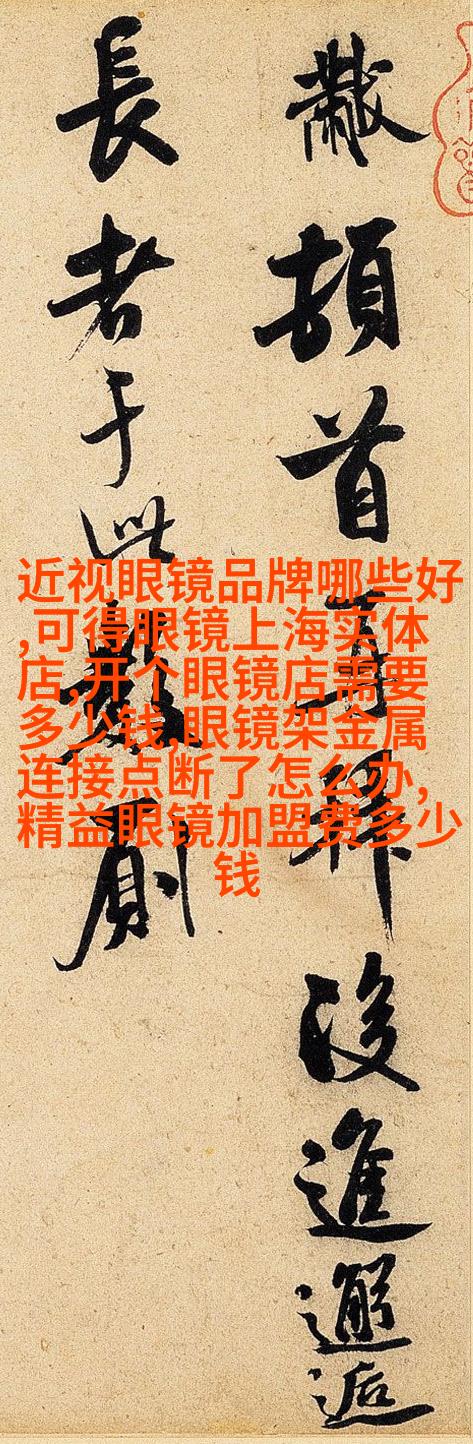 黻頓首再拜後進邂逅
長者于此數厠
近视眼镜品牌哪些好
,可得眼镜上海实体
店,开个眼镜店需要
多少钱,眼镜架金属
连接点断了怎么办,
精益眼镜加盟费多少
钱